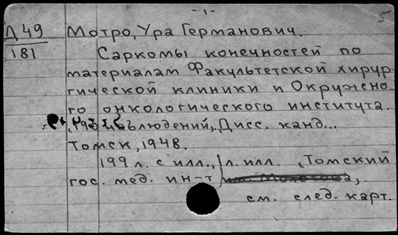 -1-
5
Л 49
181
Мотро, Ура Германович.
Саркомы конечностей по
материалам Факультетской хирур-
гической клиники и Окружно-
го онкологического института.
наблюдений, Дисс. канд...
Томск, 1948.
199 л. с илл., л. илл. , Томский
гос. мед. ин-т
см. след. карт.